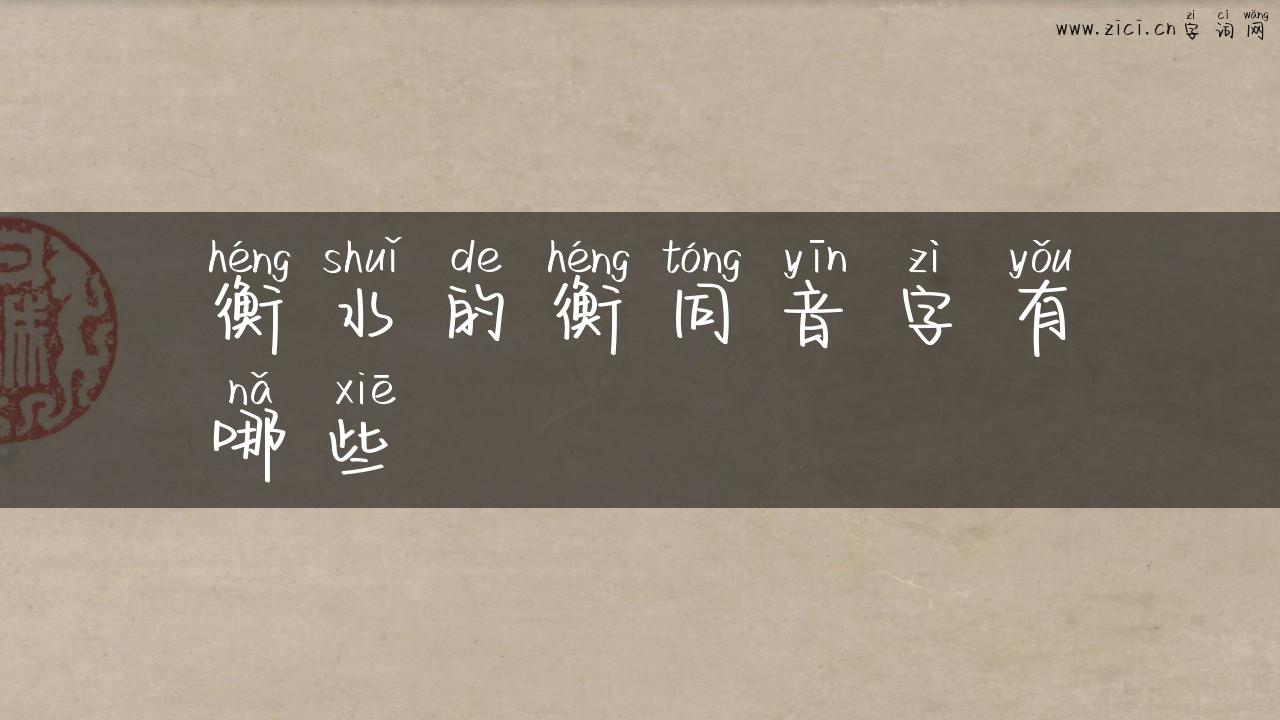 zì cí wǎng
www.zici.cn 字词网
héng shuǐ de héng tóng yīn zì yǒu
衡水的衡同音字有
nǎ xiē
哪些